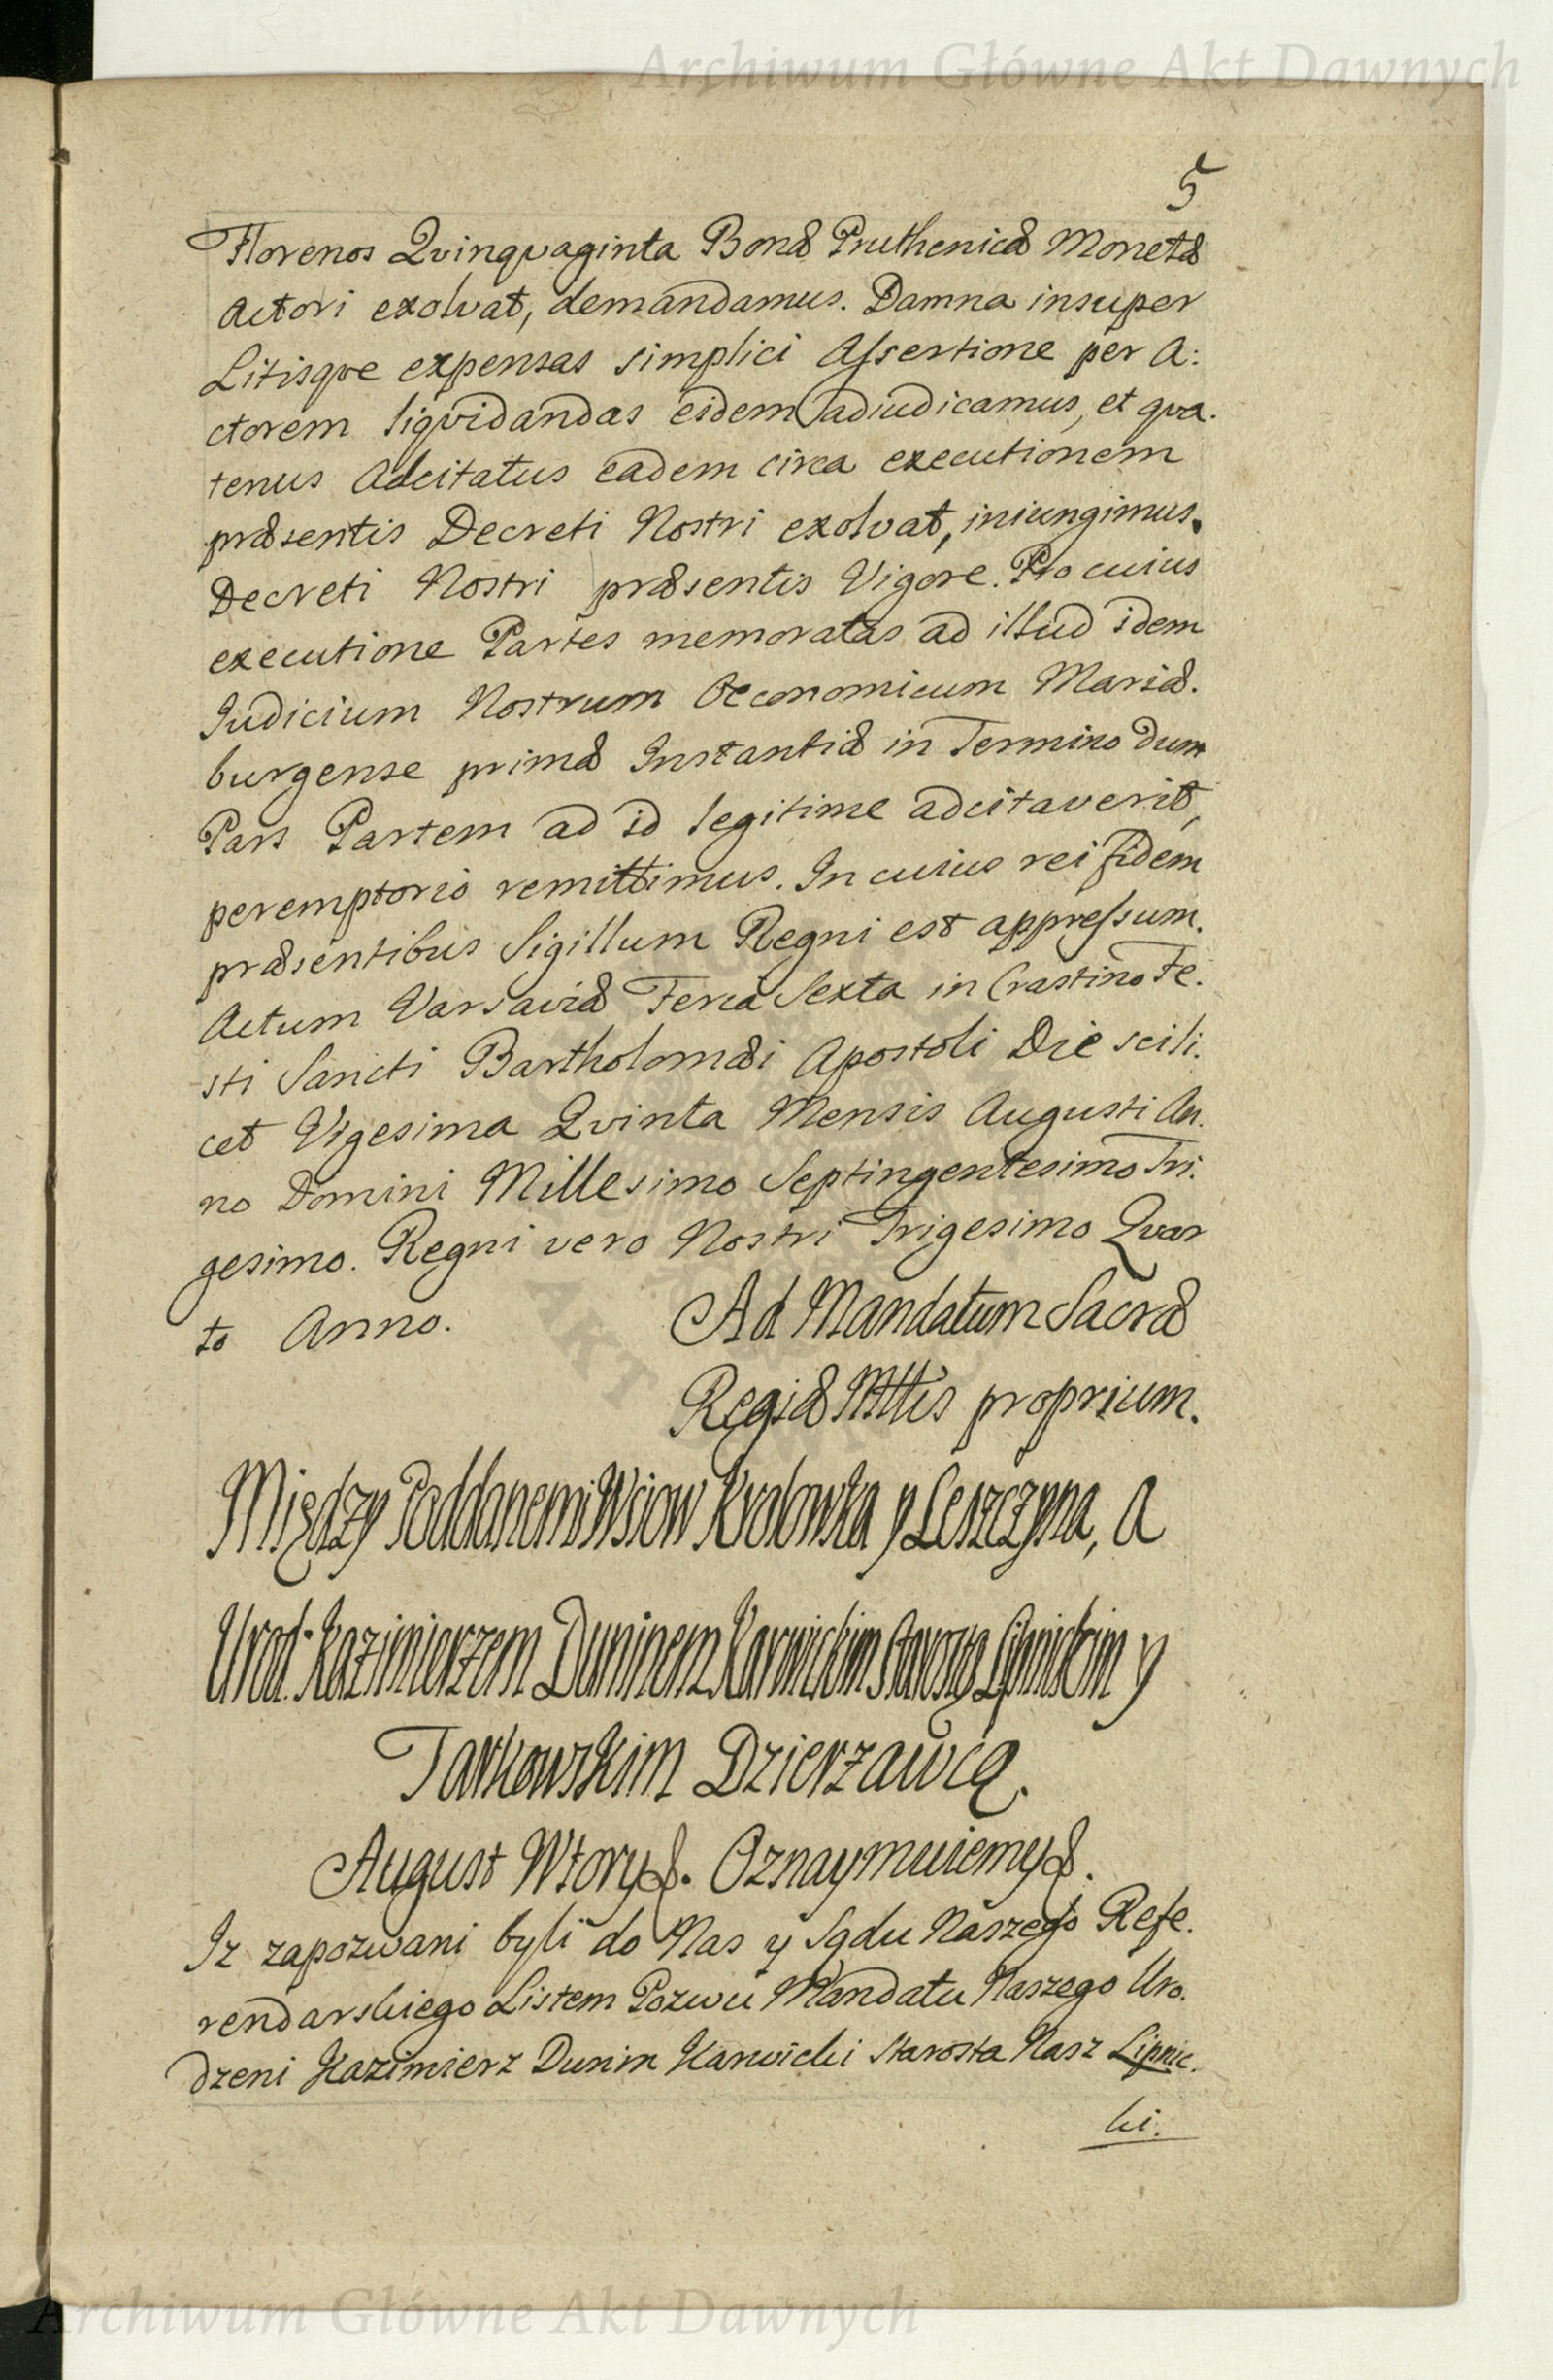 Archiwum Główne Akt Dawnych
5
Florenos Qvinqvaginta Bonæ Pruthenicæ Monetæ
Actori exolvat, demandamus. Damna insuper
Litisqve expensas simplici Assertione per A:
ctorem liqvidandas eidem adiudicamus, et qva.
tenus Adcitatus eadem circa executionem
præsentis Decreti Nostri exolvat, iniungimus.
Decreti Nostri præsentis Vigore. Pro cuius
executione Partes memoratas ad illud idem
Iudicium Nostrum Oeconomicum Mariæ.
burgense primæ Instantiæ in Termino dum
Pars Partem ad id legitime adcitaverit,
peremptorio remittimus. In cuius rei fidem
præsentibus Sigillum Regni est appressum.
Actum Varsaviæ Feria Sexta in Crastino Fe.
sti Sancti Bartholomæi Apostoli Die scili.
cet Vigesima Qvinta Mensis Augusti An.
no Domini Millesimo Septingentesimo Tri.
gesimo. Regni vero Nostri Trigesimo Qvar
to Anno.
Ad Mandatum Sacræ
Regiæ Mttis proprium.
Między Poddanemi Wsiow Krolowka y Leszczyna, a
Urod: Kazimierzem Duninem Karwickim Starostą Lipnickim y
Tarkowskim Dzierzawcą.
August Wtory &. Oznaymuiemy &.
Iz zapozwani byli do Nas y Sądu Naszego Refe.
rendarskiego Listem Pozwu Mandatu Naszego Uro.
dzeni Kazimierz Dunin Karwicki Starosta Nasz Lipnic.
ki.
Archiwum Główne Akt Dawnych